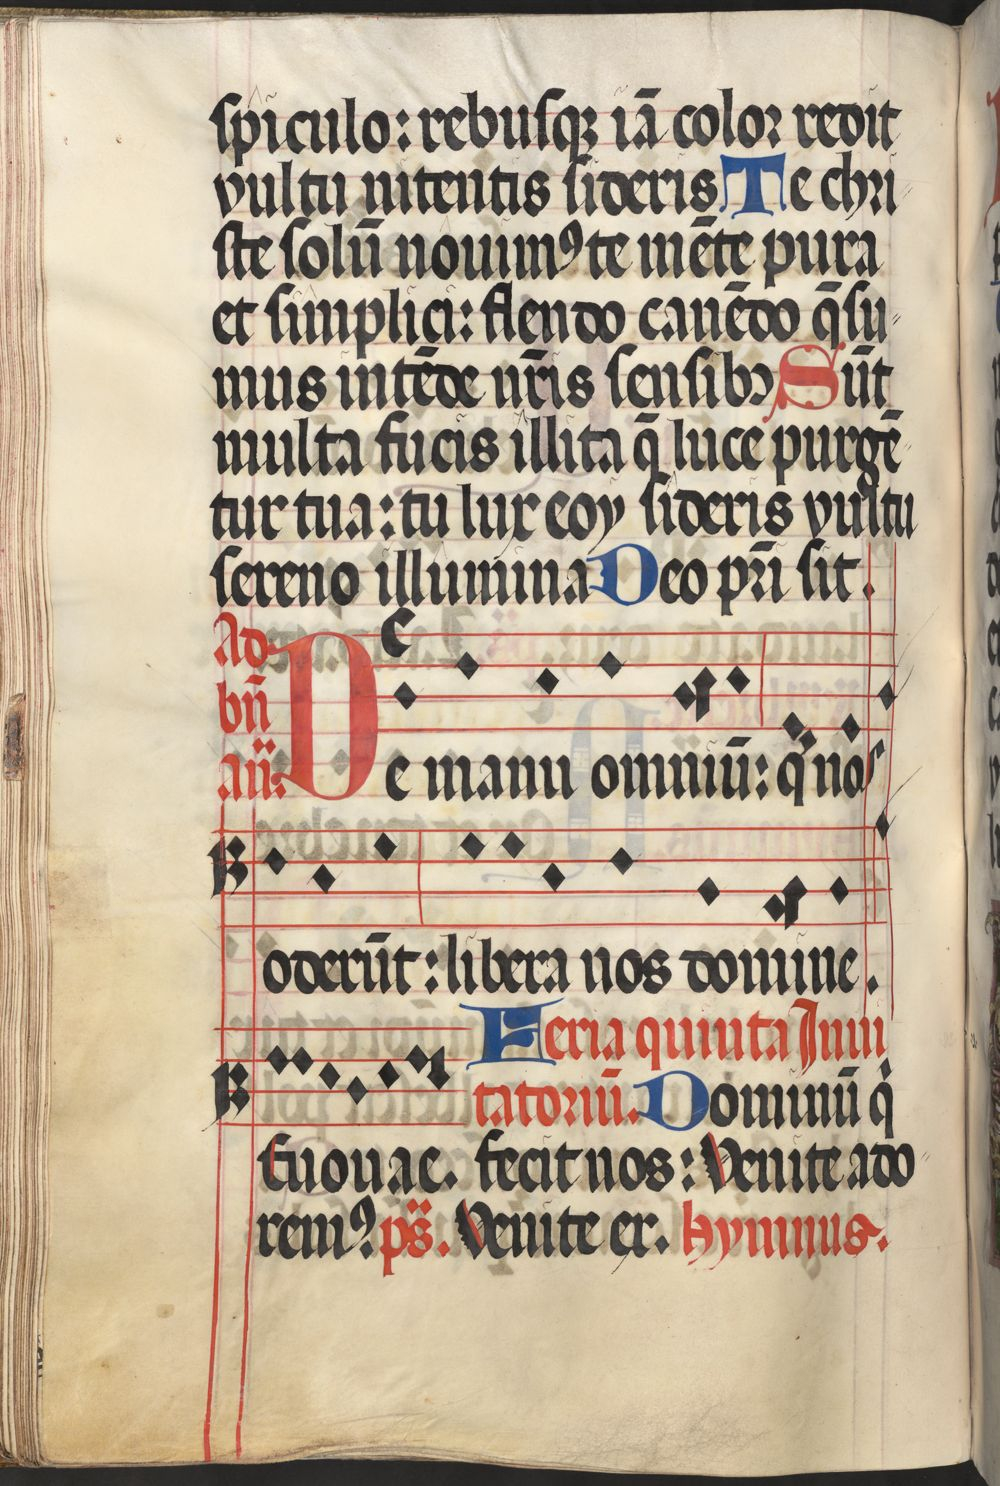 spiculo: rebusqꝫ iā color redit
vultu nitentis sideris Te chri
ste solū nouimꝰ te mēte pura
et simplici: flendo canēdo q̄su
mus intēde nr̄is sensibꝫ Sūt
multa fucis illita q̄ luce purgē
tur tua: tu lux eoy sideris vultu
sereno illumina Deo pr̄i sit.
Ad
bn̄
an̄:
De manu omniū: q̇ nos
oderūt: libera nos domine.
Feria quinta Inui
tatoriū. Dominū q̇
Euouae. fecit nos: Venite ado
remꝰ. ps̄. Venite ex. hymnus.